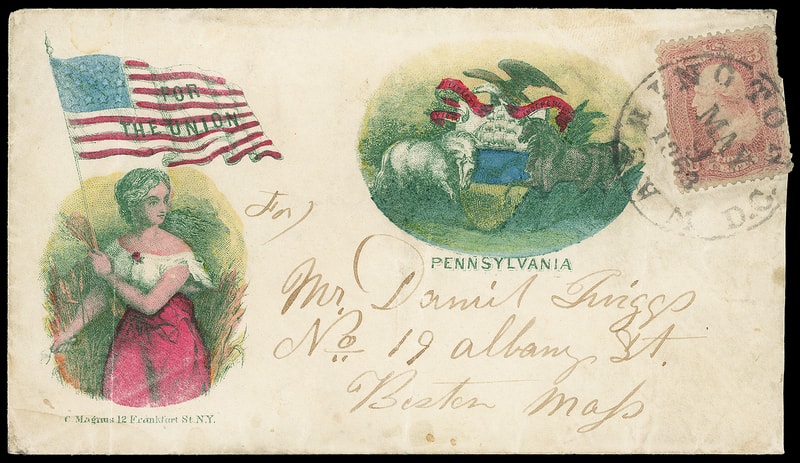 FOR
THE UNION
PENNSYLVANIA
WASHINGTON D.C.
MAY
1863
For)
Mr. Daniel Twiggs
No. 19 albany St.
Boston Mass
C. Magnus 12 Frankfort St. N.Y.